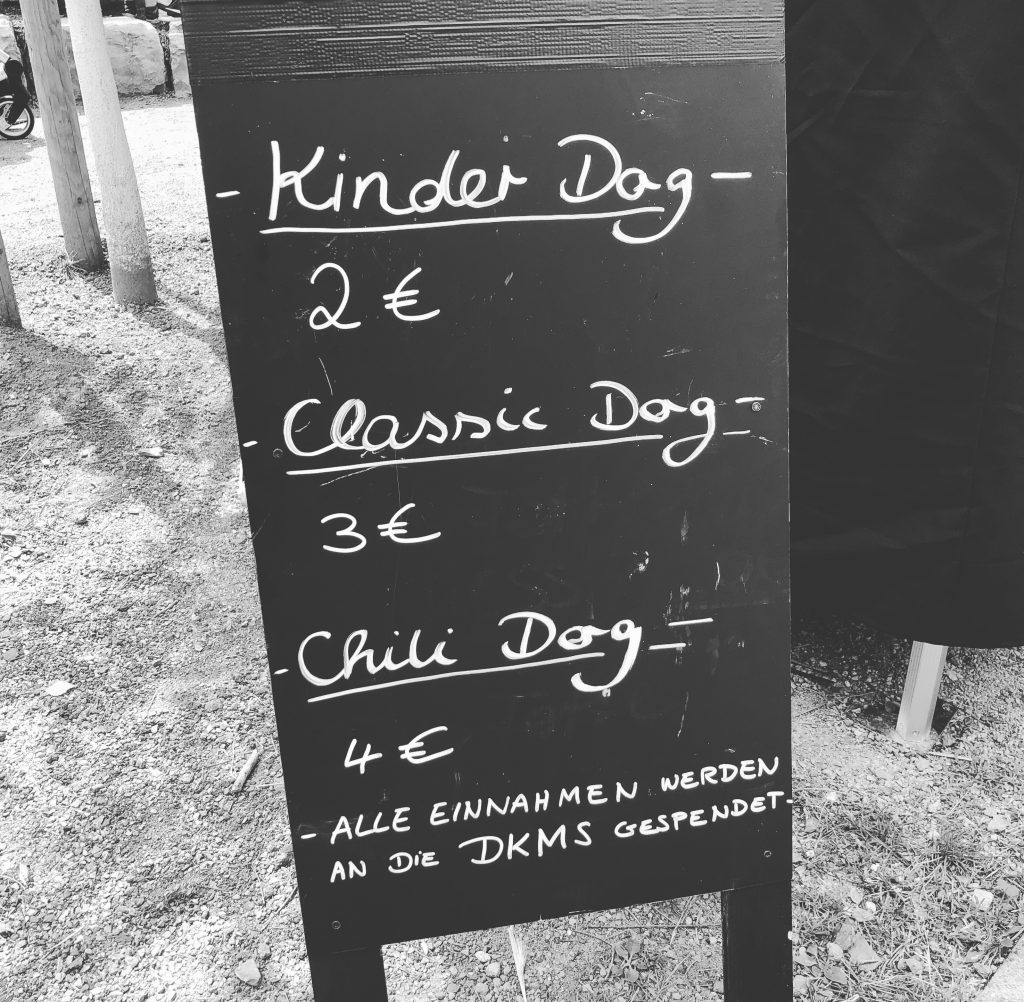 - Kinder Dog -
2 €
- Classic Dog -
3 €
- Chili Dog -
4 €
- ALLE EINNAHMEN WERDEN
AN DIE DKMS GESPENDET -